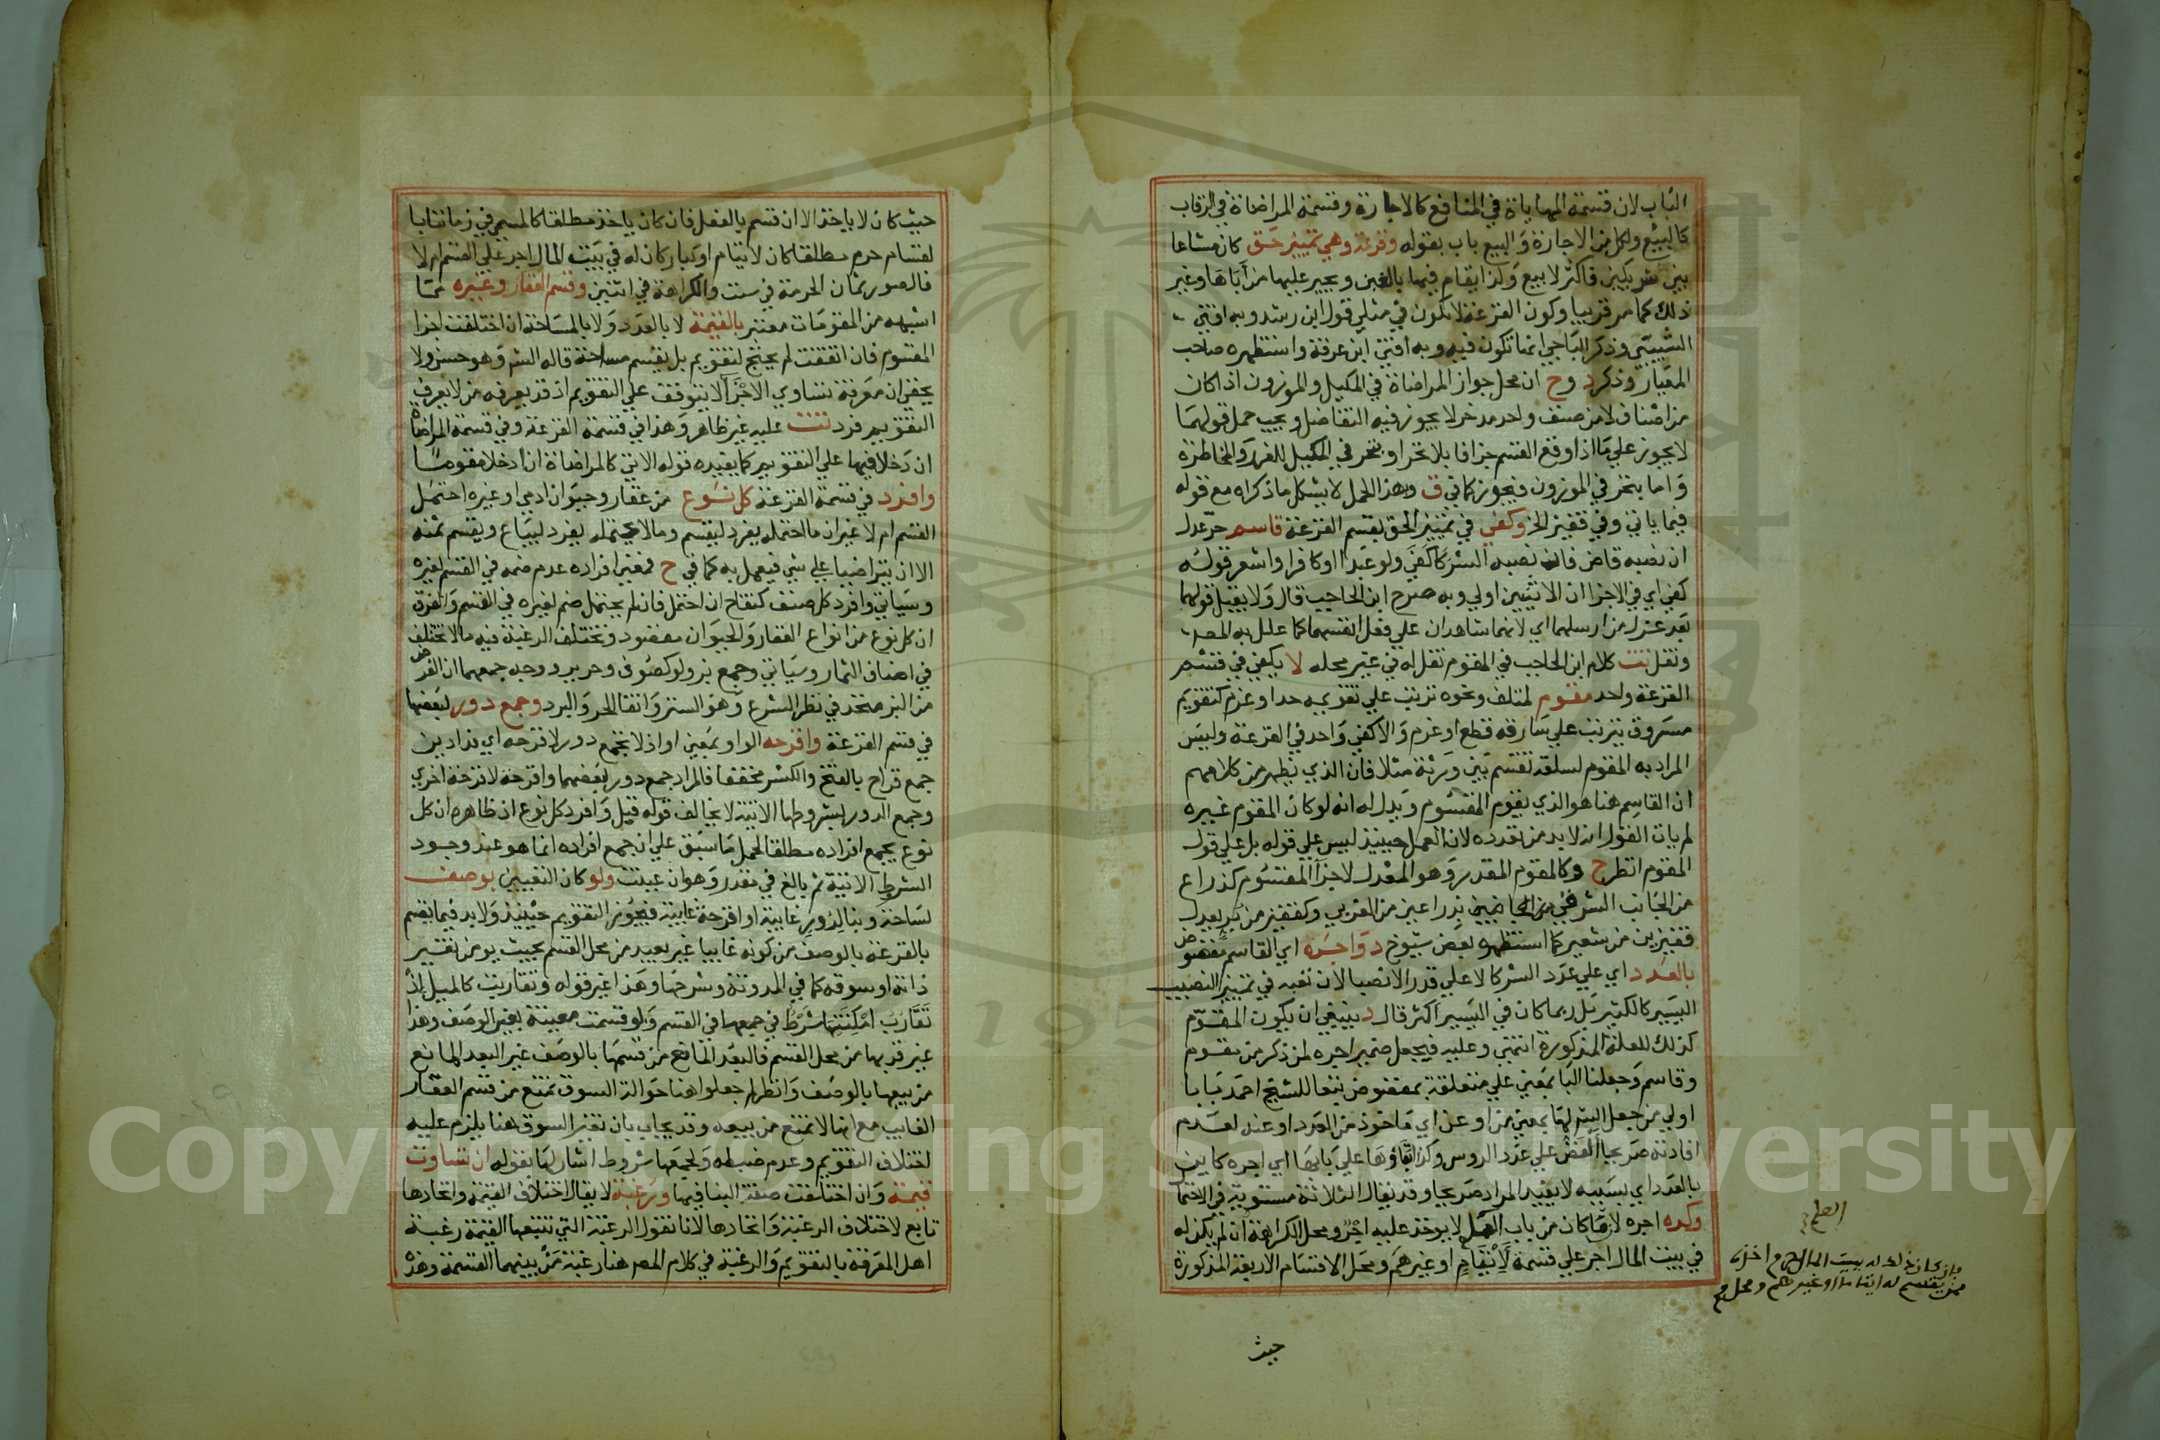 الباب لان قسمة المهاياة في المنافع كالاجارة وقسمة المراضاة في الرقاب
كالبيع ولكل من الاجارة والبيع باب بقوله وقرعة وهي تمييز حق كان مشاعا
بين شريكين فاكثر لا بيع ولذا يقام فيها بالغبن ويجبر عليها من أباها وغير
ذلك كما مر قريبا وكون القرعة لا تكون في مثلي قول ابن رشد وبه افتى
الشبيبي وذكر الباجي انها تكون فيه وبه افتى ابن عرفة واستظهره صاحب
المعيار وذكر د وح ان محل جواز المراضاة في المكيل والموزون اذا كان
من اصناف لا من صنف واحد مدخر لا يجوز فيه التفاضل ويجب حمل قولهما
لا يجوز على ما اذا وقع القسم جزافا بلا تحر او بتحر في المكيل للغرر والمخاطرة
واما بتحر في الموزون فيجوز كما في ق وبهذا الحمل لا يشكل ما ذكراه مع قوله
فيما ياتي وفي قفيز الخ وكفي في تمييز الحق بقسم القرعة قاسم حر عدل
ان نصبه قاض فان نصبه الشركا كفي ولو عبدا او كافرا واشعر قوله
كفي اي في الاجزا ان الاثنين اولى وبه صرح ابن الحاجب قال ولا يقبل قولهما
بعد عزل من ارسلهما اي لانهما شاهدان على فعل انفسهما كما علل به المص
ونقل تت كلام ابن الحاجب في المقوم نقل له في غير محله لا يكفي في قسم
القرعة واحد مقوم لمتلف ونحوه ترتب على تقويمه حد او غرم كتقويم
مسروق يترتب على سارقه قطع او غرم والا كفي واحد في القرعة وليس
المراد به المقوم لسلعة تقسم بين ورثة مثلا فان الذي يظهر من كلامهم
ان القاسم هنا هو الذي يقوم المقسوم ويدل له انه لو كان المقوم غيره
لم يات القول انه لا بد من تعدده لان العمل حينيذ ليس على قوله بل على قول
المقوم انظر ح وكالمقوم المقدر وهو المعدل لاجزا المقسوم كذراع
من الجانب الشرقي من الجانبين بذراعين من الغربي وكقفيز من بر يعدل
قفيزين من شعير كما استظهره بعض شيوخ د واجره اي القاسم مفضوض
بالعدد اي على عدد الشركا لا على قدر الانصبا لان تعبه في تمييز النصيب
اليسير كالكثير بل ربما كان في اليسير اكثر قال د ينبغي ان يكون المقوم
كذلك للعلة المذكورة انتهى وعليه فيجعل ضمير اجره لمن ذكر من مقوم
وقاسم وجعلنا البا بمعنى على متعلقة بمفضوض تبعا للشيخ احمد بابا
اولى من جعل لها بمعنى من او عن اي ماخوذ من العدد او عنه لعدم
افادته صريحا الفض على عدد الروس وكذا ابقاوها على بابها اي اجره كاين
بالعدد اي بسببه لا يفيد المراد صريحا وقد يقال الثلاثة مستوية في الاحتمال
وكره اجره لا ما كان من باب العمل لا يوخذ عليه اجر ومحل الكراهة ان لم يكن له
في بيت المال اجر على قسمة لايتام او غيرهم ومحل الاقسام الاربعة المذكورة
فان كان ذلك له بيت المال حرم اخذه
ممن يقسم له ايتاما او غيرهم ومحل
حيث
حيث كان لا ياخذ الا ان قسم بالفعل فان كان ياخذ مطلقا كالمسمى في زماننا بالقسام
حرم مطلقا كان لايتام او كبار كان له في بيت المال اجر على القسم ام لا
فالصور ثمان الحرمة في ست والكراهة في اثنين وقسم العقار وغيره مما
اشبهه من المقومات معتبر بالقيمة لا بالعدد ولا بالمساحة ان اختلفت اجزا
المقسوم فان اتفقت لم يحتج لتقويم بل يقسم مساحة قاله الش وهو حسن ولا
يخفي ان معرفة تساوي الاجزا لا يتوقف على التقويم اذ قد يعرفه من لا يعرف
التقويم فرد تت عليه غير ظاهر وهذا في قسمة القرعة وفي قسمة المراضاة
ان دخلا فيها على التقويم كما يفيده قوله الاتي كالمراضاة ان ادخلا مقوما
وافرد في قسمة القرعة كل نوع من عقار وحيوان ادمي او غيره احتمل
القسم ام لا غير ان ما احتمله يفرد ليقسم وما لا يحتمله يفرد ليباع ويقسم ثمنه
الا ان يتراضيا على شي فيعمل به كما في ح فمعنى افراده عدم ضمه في القسم لغيره
وسياتي وافرد كل صنف كتفاح ان احتمل فان لم يحتمل ضم لغيره في القسم والفرق
ان كل نوع من انواع العقار والحيوان مقصود وتختلف الرغبة فيه ما لا تختلف
في اصناف الثمار وسياتي وجمع بز ولو كصوف وحرير ووجه جمعهما ان الغرض
من البز متحد في نظر الشرع وهو الستر واتقا الحر والبرد وجمع دور لبعضها
في قسم القرعة واقرحه الواو بمعنى او اذ لا تجمع دور لاقرحة اي فدادين
جمع قراح بالفتح والكسر مخففا فالمراد جمع دور لبعضهما واقرحة لاقرحة اخرى
وجمع الدور بشروطها الاتية لا يخالف قوله قبل وافرد كل نوع اذ ظاهره ان كل
نوع يجمع افراده مطلقا لحمل ما سبق على ان جمع افراده انما هو عند وجود
الشرط الاتية ثم بالغ في مقدر وهو ان عينت ولو كان التعيين بوصف
لساحة وبنا لدور غايبة او اقرحة غايبة فيجوز التقويم حينيذ ولا بد فيما يقسم
بالقرعة بالوصف من كونه غايبا غير بعيد من محل القسم بحيث يومن تغير
ذاته او سوقه كما في المدونة وشرحها وهذا غير قوله وتقاربت كالميل اذ
تقارب امكنتها شرط في جمعها في القسم ولو قسمت معينة بغير الوصف وهذا
غير قربها من محل القسم فالبعد المانع من قسمها بالوصف غير البعد المانع
من بيعها بالوصف وانظر لم جعلوا هنا حوالة السوق تمنع من قسم العقار
الغايب مع انها لا تمنع من بيعه وقد يجاب بان تغير السوق هنا يلزم عليه
اختلاف التقويم وعدم ضبطه ولجمعها شروط اشار لها بقوله ان تساوت
قيمة وان اختلفت صفة البنا فيها ورغبة لا يقال اختلاف القيمة واتحادها
تابع لاختلاف الرغبة واتحادها لانا نقول الرغبة التي تتبعها القيمة رغبة
اهل المعرفة بالتقويم والرغبة في كلام المص هنا رغبة من بينهما القسمة وهذه
Copyright © King Saud University